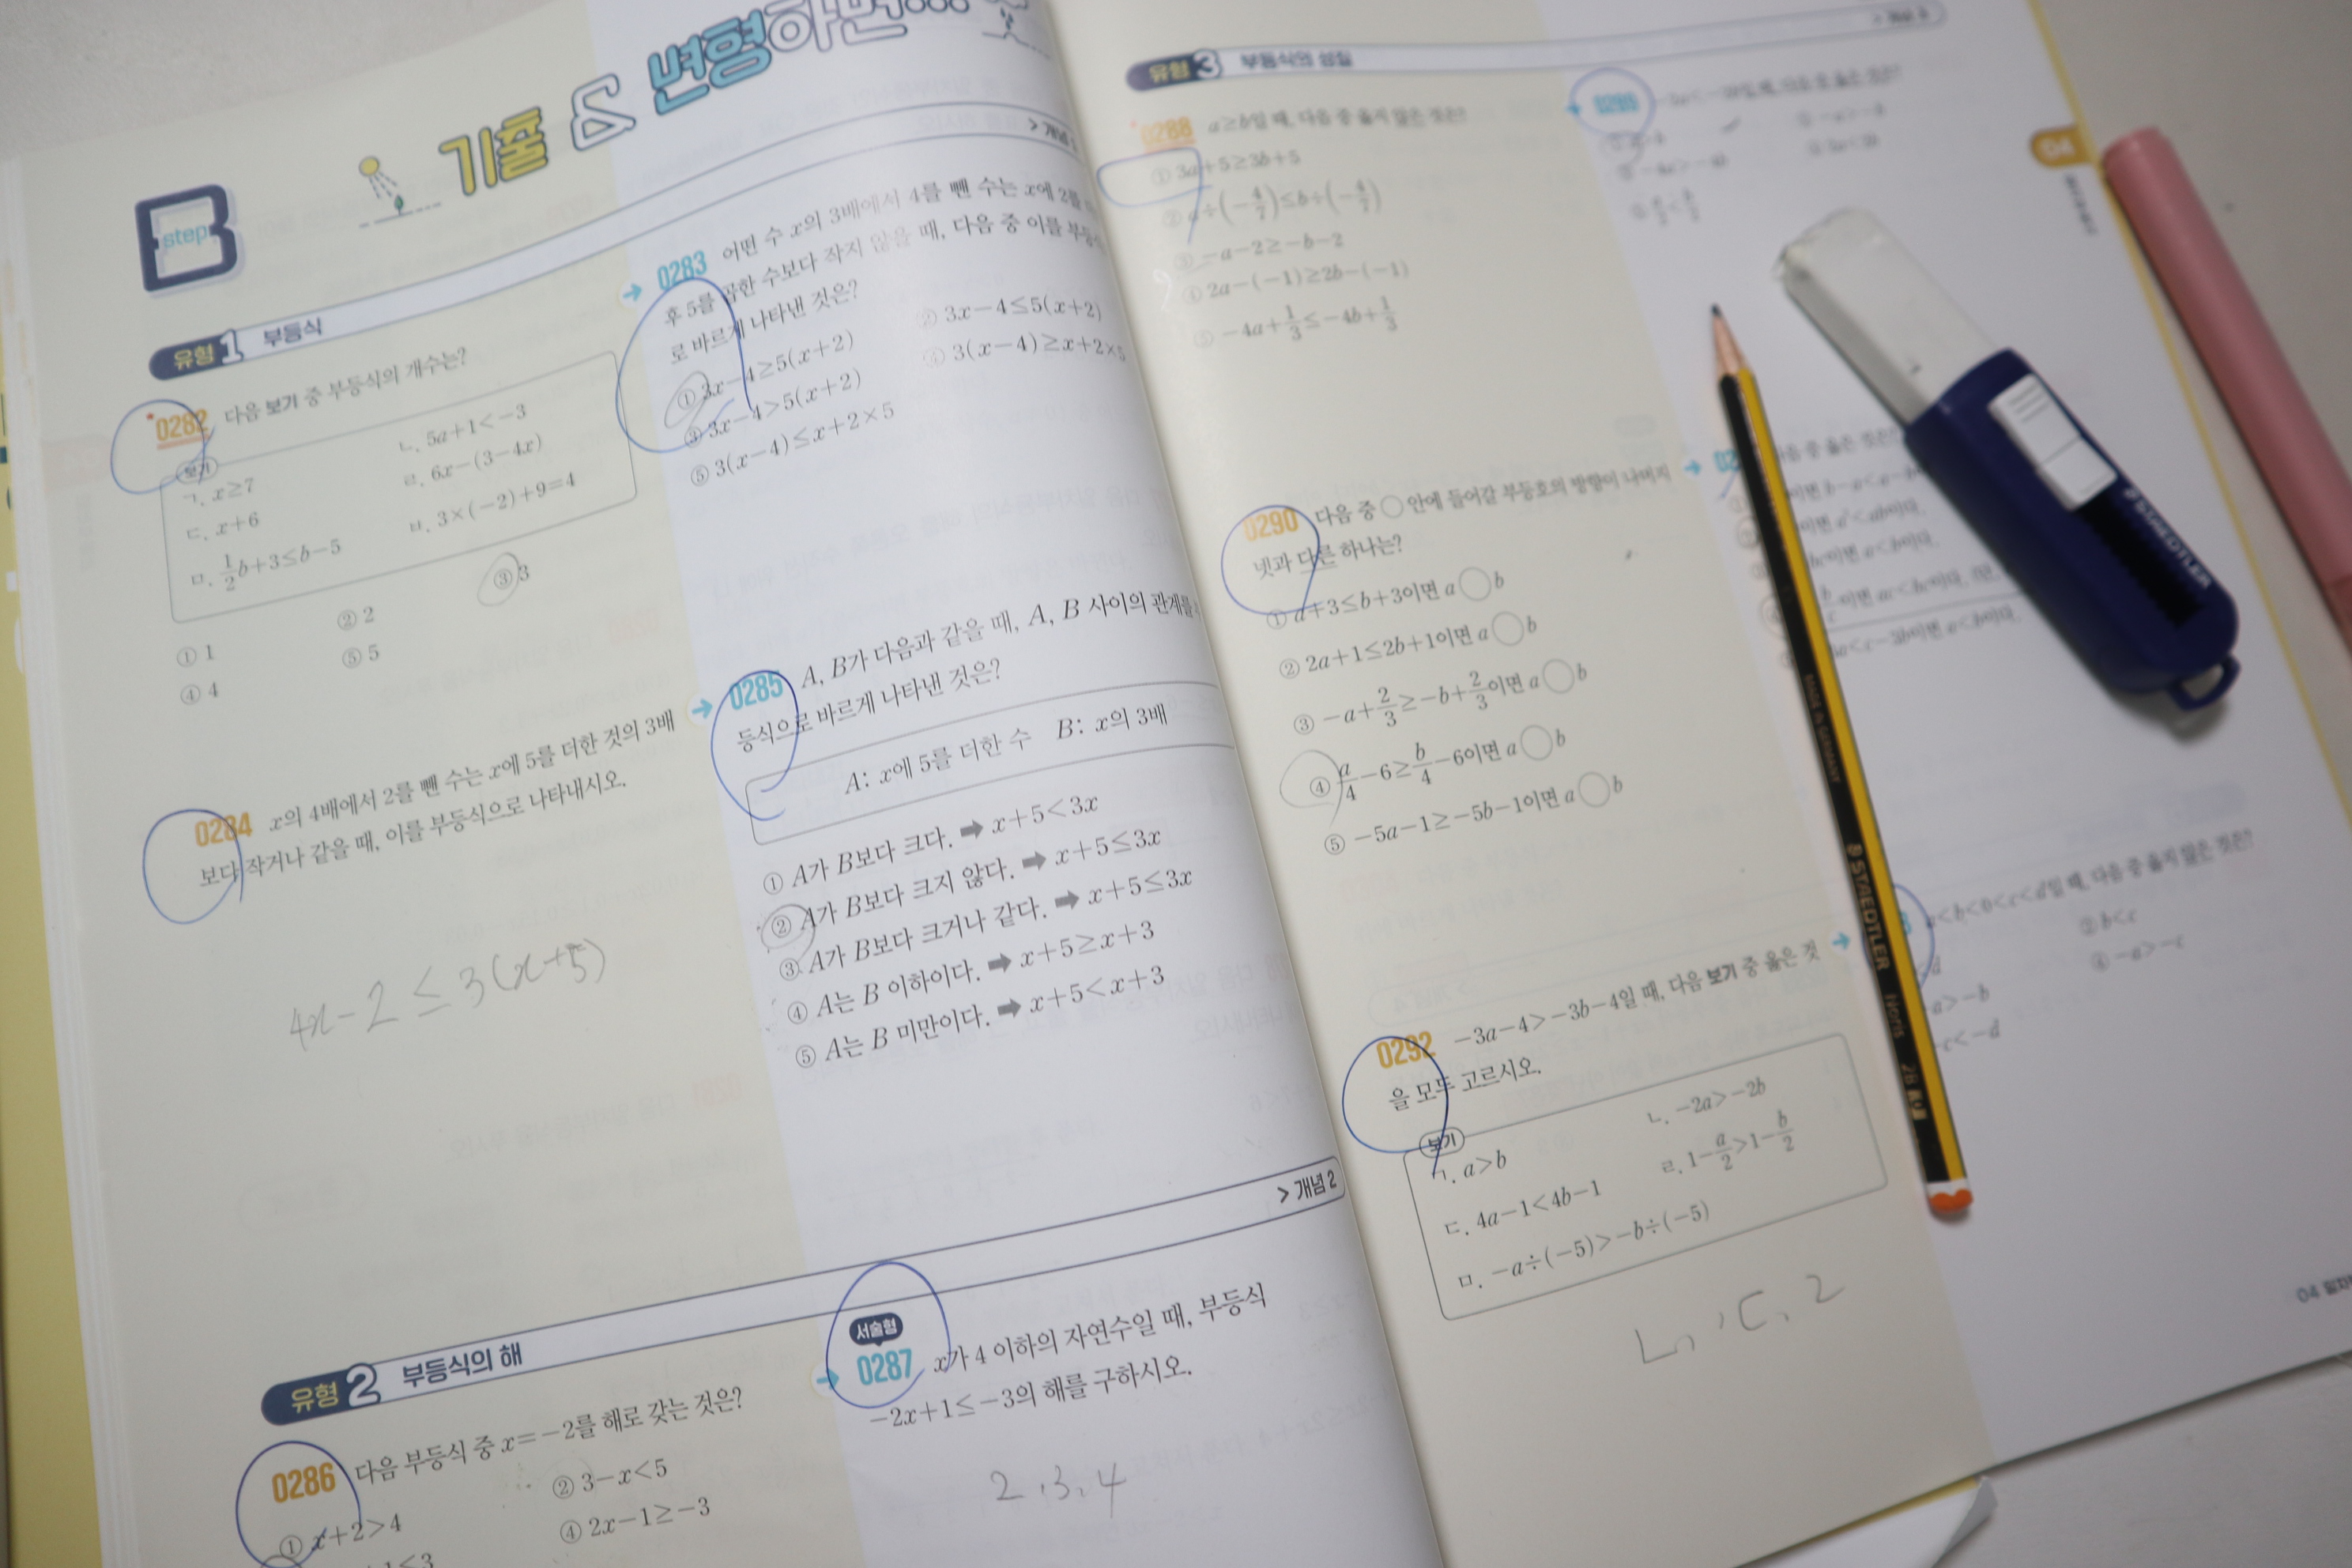 B step
기출 & 변형하면...
> 개념 1
유형 1 부등식
0282 다음 보기 중 부등식의 개수는?
보기
ㄱ. x≥7
ㄴ. 5a+1<-3
ㄷ. x+6
ㄹ. 6x-(3-4x)
ㅁ. 1/2 b+3≤b-5
ㅂ. 3×(-2)+9=4
① 1
② 2
③ 3
④ 4
⑤ 5
→ 0283 어떤 수 x의 3배에서 4를 뺀 수는 x에 2를
후 5를 곱한 수보다 작지 않을 때, 다음 중 이를 부등식
로 바르게 나타낸 것은?
① 3x-4≥5(x+2)
② 3x-4≤5(x+2)
③ 3x-4>5(x+2)
④ 3(x-4)≥x+2×5
⑤ 3(x-4)≤x+2×5
0284 x의 4배에서 2를 뺀 수는 x에 5를 더한 것의 3배
보다 작거나 같을 때, 이를 부등식으로 나타내시오.
4x-2≤3(x+5)
→ 0285 A, B가 다음과 같을 때, A, B 사이의 관계를
등식으로 바르게 나타낸 것은?
A: x에 5를 더한 수 B: x의 3배
① A가 B보다 크다. ➡ x+5<3x
② A가 B보다 크지 않다. ➡ x+5≤3x
③ A가 B보다 크거나 같다. ➡ x+5≤3x
④ A는 B 이하이다. ➡ x+5≥x+3
⑤ A는 B 미만이다. ➡ x+5<x+3
> 개념 2
유형 2 부등식의 해
0286 다음 부등식 중 x=-2를 해로 갖는 것은?
① x+2>4
② 3-x<5
④ 2x-1≥-3
서술형
→ 0287 x가 4 이하의 자연수일 때, 부등식
-2x+1≤-3의 해를 구하시오.
2, 3, 4
유형 3 부등식의 성질
0288 a≥b일 때, 다음 중 옳지 않은 것은?
① 3a+5≥3b+5
② a÷(-4/7)≤b÷(-4/7)
③ -a-2≥-b-2
④ 2a-(-1)≥2b-(-1)
⑤ -4a+1/3≤-4b+1/3
→ 0289
0290 다음 중 ○ 안에 들어갈 부등호의 방향이 나머지
넷과 다른 하나는?
① a+3≤b+3이면 a○b
② 2a+1≤2b+1이면 a○b
③ -a+2/3≥-b+2/3이면 a○b
④ a/4-6≥b/4-6이면 a○b
⑤ -5a-1≥-5b-1이면 a○b
다음 중 옳은 것은?
0292 -3a-4>-3b-4일 때, 다음 보기 중 옳은 것
을 모두 고르시오.
보기
ㄱ. a>b
ㄴ. -2a>-2b
ㄷ. 4a-1<4b-1
ㄹ. 1-a/2>1-b/2
ㅁ. -a÷(-5)>-b÷(-5)
ㄴ, ㄷ, ㄹ
a<b<0<c<d일 때, 다음 중 옳지 않은 것은?
② b<c
④ -a>-c
04
STAEDTLER
STAEDTLER Noris 2B